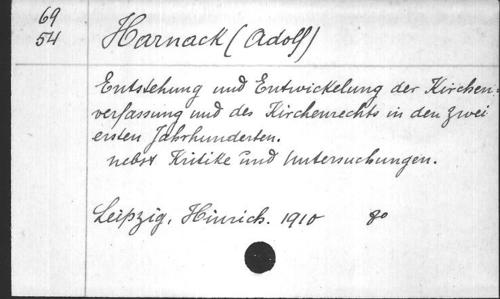 69
54
Harnack (Adolf)
Entstehung und Entwickelung der Kirchen-
verfassung und des Kirchenrechts in den zwei
ersten Jahrhunderten.
nebst Kritike und Untersuchungen.
Leipzig, Hinrich. 1910 8o